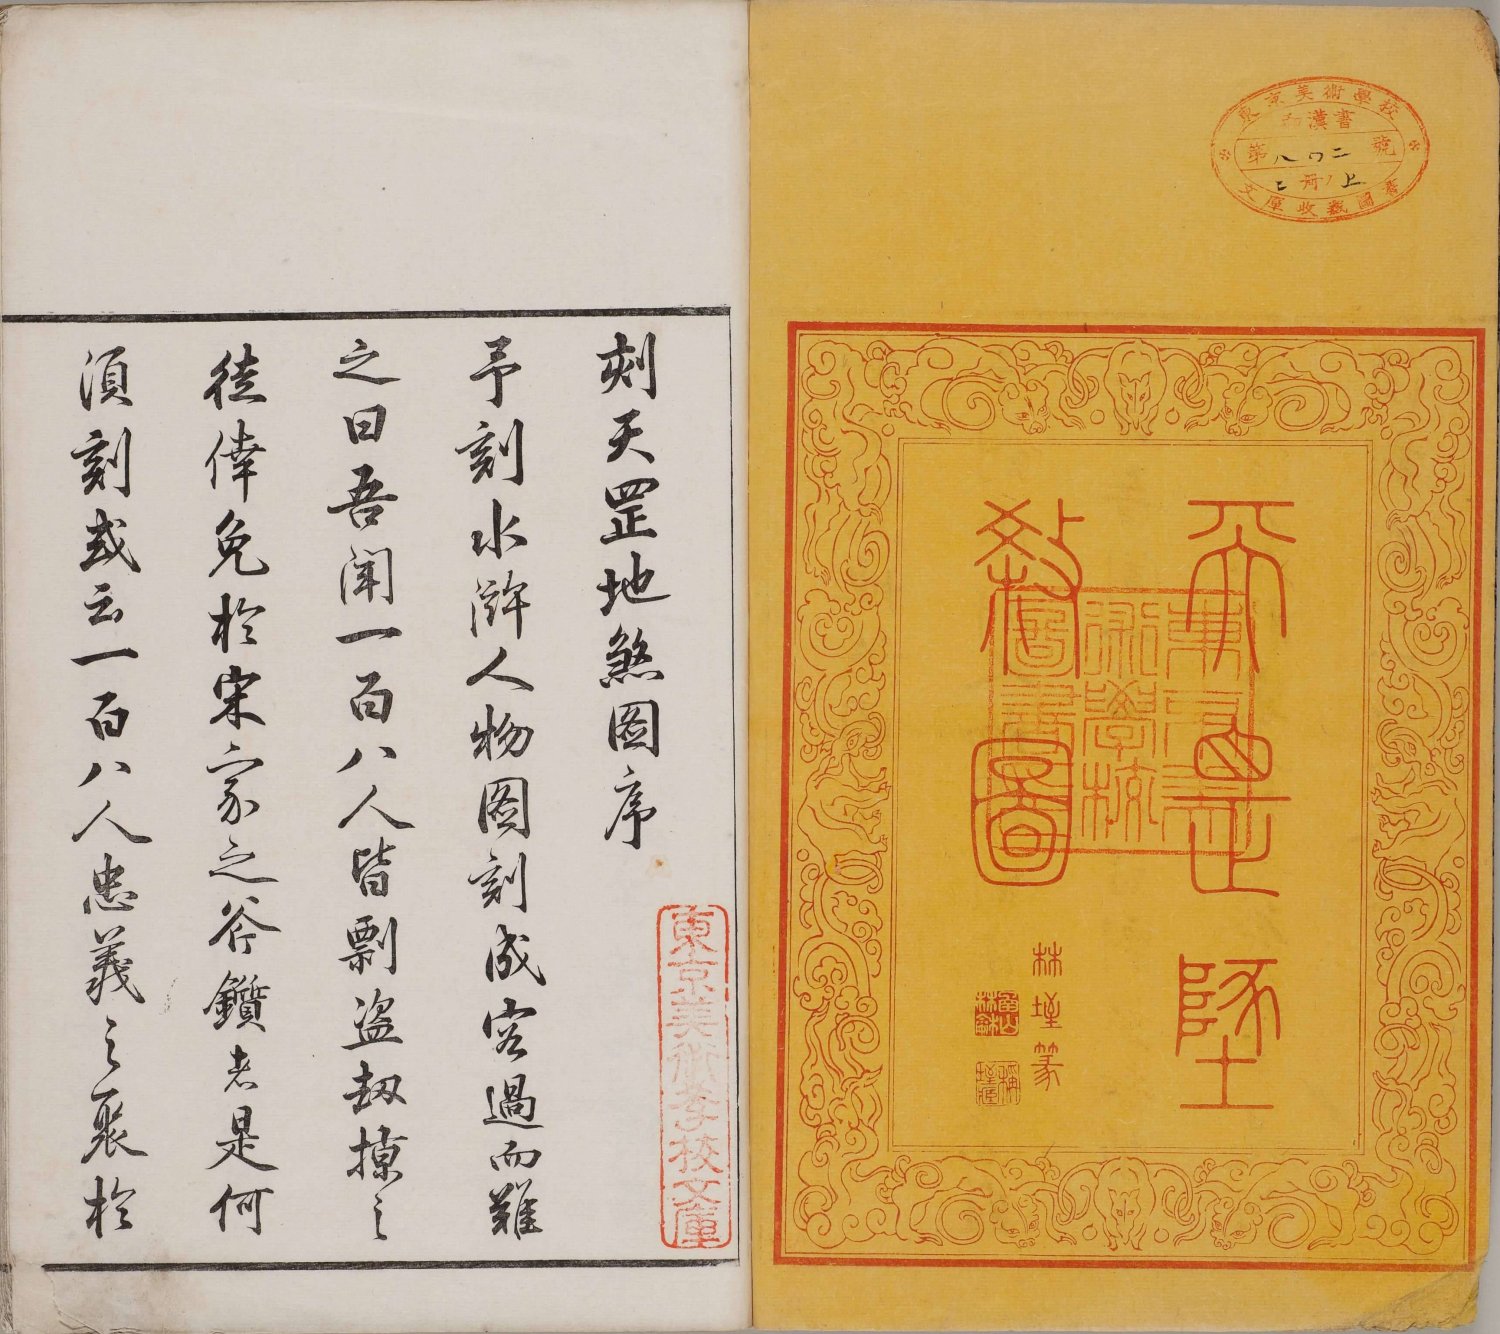 東京美術學校
和漢書
第八四二號
二冊ノ上
文庫收藏圖書
天罡墬
圖
東京美
術學校
林 篆
東京美術學校文庫
刻天罡地煞图序
予刻水滸人物图刻成客過而難
之曰吾聞一百八人皆剽盜劫掠之
徒倖免於宋家之斧鑕者是何
須刻或云一百八人忠義之聚於